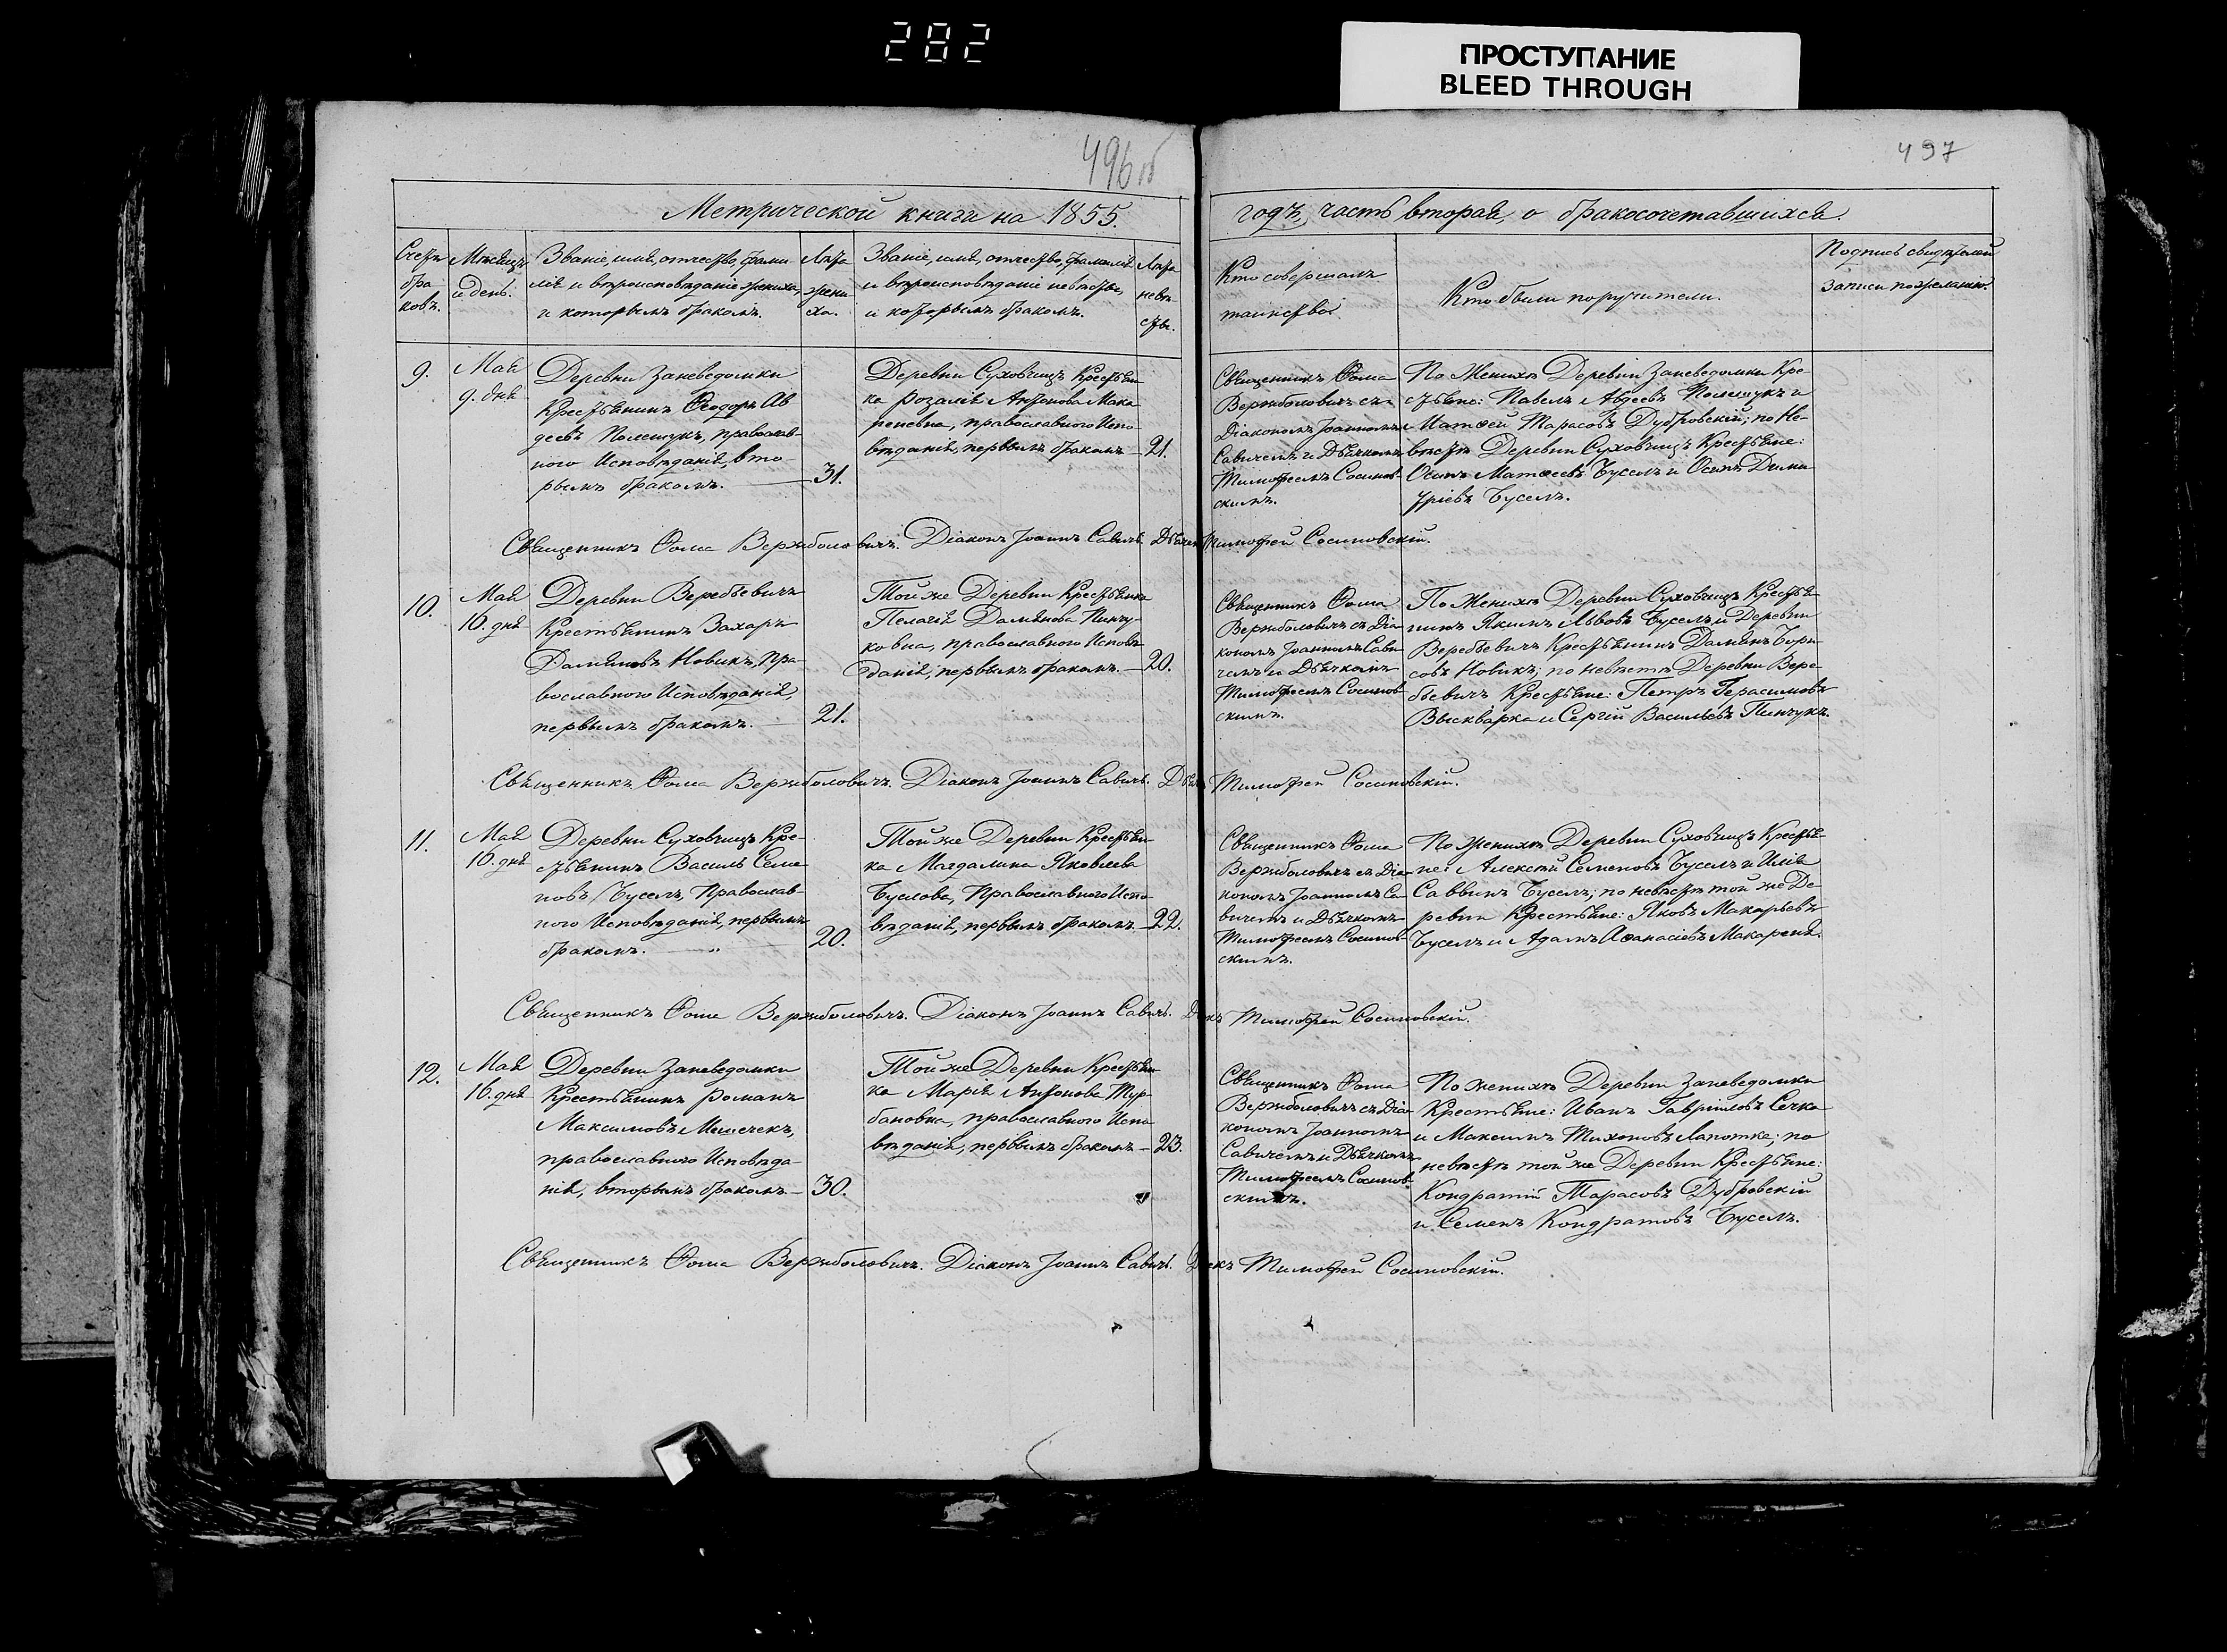 282
ПРОСТУПАНИЕ
BLEED THROUGH
496 об
497
Метрической книги на 1855.
годъ, часть вторая, о бракосочетавшихся.
Счетъ
бра
ковъ.
Мѣсяцъ
и день.
Званіе, имя, отчество, фами
лія и вѣроисповѣданіе жениха,
и которымъ бракомъ.
Лѣта
жени
ха.
Званіе, имя, отчество, фамилія
и вѣроисповѣданіе невѣсты,
и которымъ бракомъ.
Лѣта
невѣ
сты.
Кто совершалъ
таинство
Кто были поручители.
Подпись свидѣтелей
записи по желанію.
9.
Мая
9. дня
Деревни Заневедомки
Крестьянинъ Ѳеодоръ Ав
деевъ Полещукъ, православ-
ного Исповѣданія, вто-
рымъ бракомъ.
31.
Деревни Суховчицъ Крестьян
ка Розалія Антонова Мака
ревна, православного Испо-
вѣданія, первымъ бракомъ
21.
Священникъ Ѳома
Вержболовичъ съ
Діакономъ Іоанномъ
Савичемъ и Дьячкомъ
Тимофеемъ Сосинов-
скимъ.
По Женихѣ Деревни Заневедомки Кре-
стьяне: Павелъ Авдеевъ Полещукъ и
Матѳей Тарасовъ Дубровскій; по Не-
вѣстѣ Деревни Суховчицъ Крестьяне:
Осипъ Матѳеевъ Буселъ и Осипъ Дими
тріевъ Буселъ.
Священникъ Ѳома Вержболовичъ. Діаконъ Іоаннъ Савичъ. Дьячекъ Тимофей Сосиновскій.
10.
Мая
16. дня
Деревни Веребьевичъ
Крестьянинъ Захаръ
Даміановъ Новикъ, Пра-
вославного Исповѣданія,
первымъ бракомъ.
21.
Той же Деревни Крестьянка
Пелагія Даміянова Пинчу-
ковна, православного Исповѣ
данія, первымъ бракомъ.
20.
Священникъ Ѳома
Вержболовичъ съ Діа
кономъ Іоанномъ Сави
чемъ и Дьячкомъ
Тимофеемъ Сосинов
скимъ.
По Женихѣ Деревни Суховчицъ Крестья
нинъ Якимъ Львовъ Буселъ и Деревни
Веребьевичъ Крестьянинъ Даміянъ Бори-
совъ Новикъ; по невѣстѣ Деревни Вере-
бьевичъ Крестьяне: Петръ Герасимовъ
Выскварка и Сергій Васильевъ Пинчукъ.
Священникъ Ѳома Вержболовичъ. Діаконъ Іоаннъ Савичъ. Дьячекъ Тимофей Сосиновскій.
11.
Мая
16. дня
Деревни Суховчицъ Кре-
стьянинъ Василь Семе
новъ Буселъ, Православ-
ного Исповѣданія, первымъ
бракомъ.
20.
Той же Деревни Крестьян-
ка Магдалина Яковлева
Буслова, Православного Испо
вѣданія, первымъ бракомъ
22.
Священникъ Ѳома
Вержболовичъ съ Діа
кономъ Іоанномъ Са
вичемъ и Дьячкомъ
Тимофеемъ Сосинов-
скимъ.
По Женихѣ Деревни Суховчицъ Крестья-
не: Алексѣй Семеновъ Буселъ и Илія
Саввинъ Буселъ; по невѣстѣ той же Де-
ревни Крестьяне: Яковъ Макарьевъ
Буселъ и Адамъ Аѳанасіевъ Макареня.
Священникъ Ѳома Вержболовичъ. Діаконъ Іоаннъ Савичъ. Дьячекъ Тимофей Сосиновскій.
12.
Мая
16. дня
Деревни Заневедомки
Крестьянинъ Романъ
Максимовъ Мешечекъ,
православного Исповѣда-
нія, вторымъ бракомъ
30.
Той же Деревни Крестьян
ка Марія Антонова Тур-
бановна, православного Испо
вѣданія, первымъ бракомъ
23.
Священникъ Ѳома
Вержболовичъ съ Діа
кономъ Іоанномъ
Савичемъ и Дьячкомъ
Тимофеемъ Сосинов-
скимъ.
По женихѣ Деревни Заневедомки
Крестьяне: Иванъ Гавріиловъ Сечко
и Максимъ Тихоновъ Лапотка; по
невѣстѣ той же Деревни Крестьяне:
Кондратій Тарасовъ Дубровскій
и Семенъ Кондратовъ Буселъ.
Священникъ Ѳома Вержболовичъ. Діаконъ Іоаннъ Савичъ. Дьячекъ Тимофей Сосиновскій.